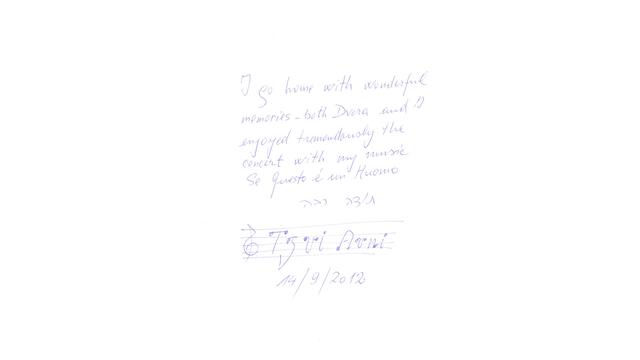 I go home with wonderful
memories - both Dvora and I
enjoyed tremendously the
concert with my music
Se Questo é un Huomo
תודה רבה
Tzvi Avni
14/9/2012